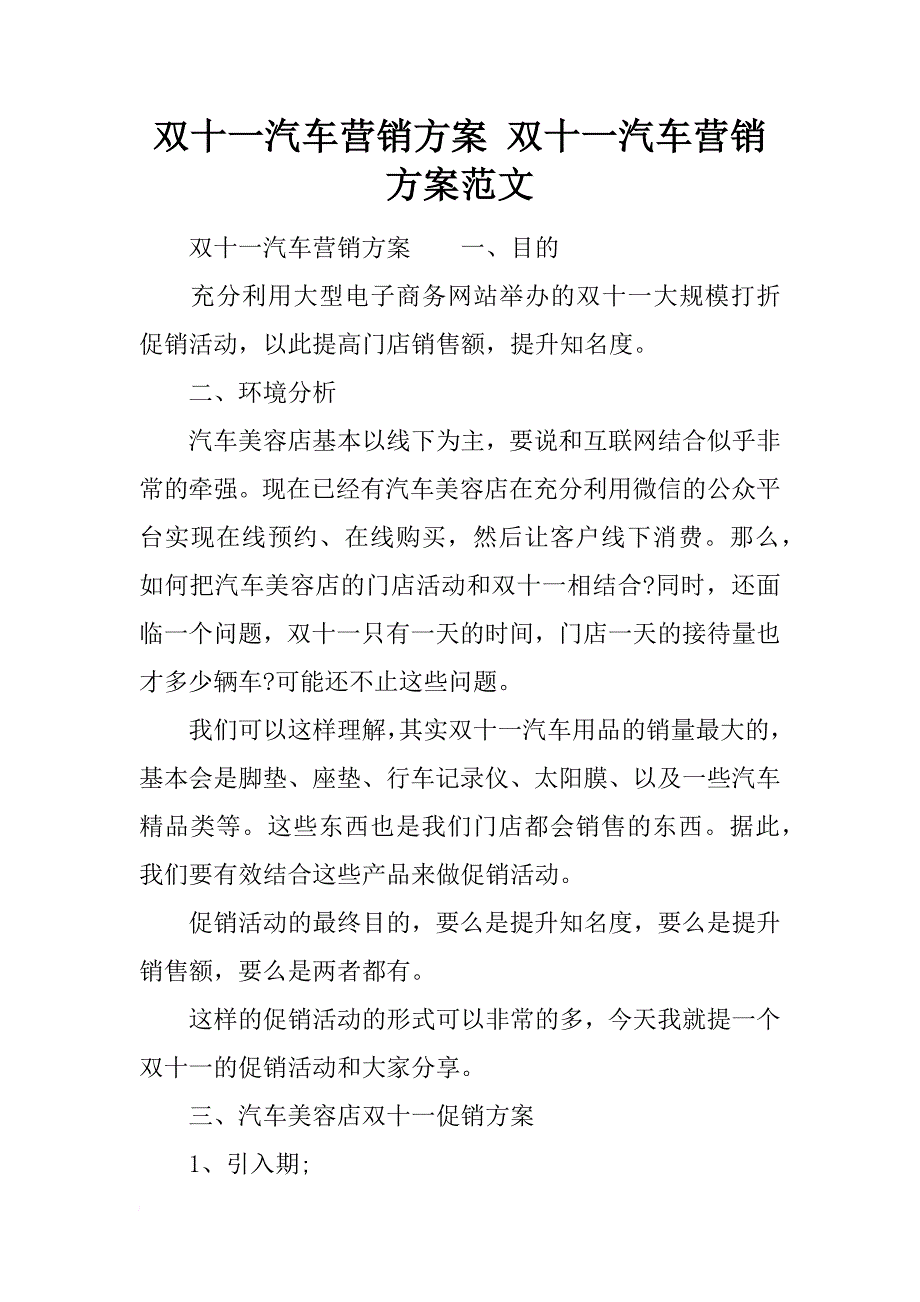 双十一汽车营销方案 双十一汽车营销
方案范文
双十一汽车营销方案　　一、目的
充分利用大型电子商务网站举办的双十一大规模打折
促销活动，以此提高门店销售额，提升知名度。
二、环境分析
汽车美容店基本以线下为主，要说和互联网结合似乎非
常的牵强。现在已经有汽车美容店在充分利用微信的公众平
台实现在线预约、在线购买，然后让客户线下消费。那么，
如何把汽车美容店的门店活动和双十一相结合?同时，还面
临一个问题，双十一只有一天的时间，门店一天的接待量也
才多少辆车?可能还不止这些问题。
我们可以这样理解，其实双十一汽车用品的销量最大的，
基本会是脚垫、座垫、行车记录仪、太阳膜、以及一些汽车
精品类等。这些东西也是我们门店都会销售的东西。据此，
我们要有效结合这些产品来做促销活动。
促销活动的最终目的，要么是提升知名度，要么是提升
销售额，要么是两者都有。
这样的促销活动的形式可以非常的多，今天我就提一个
双十一的促销活动和大家分享。
三、汽车美容店双十一促销方案
1、引入期;